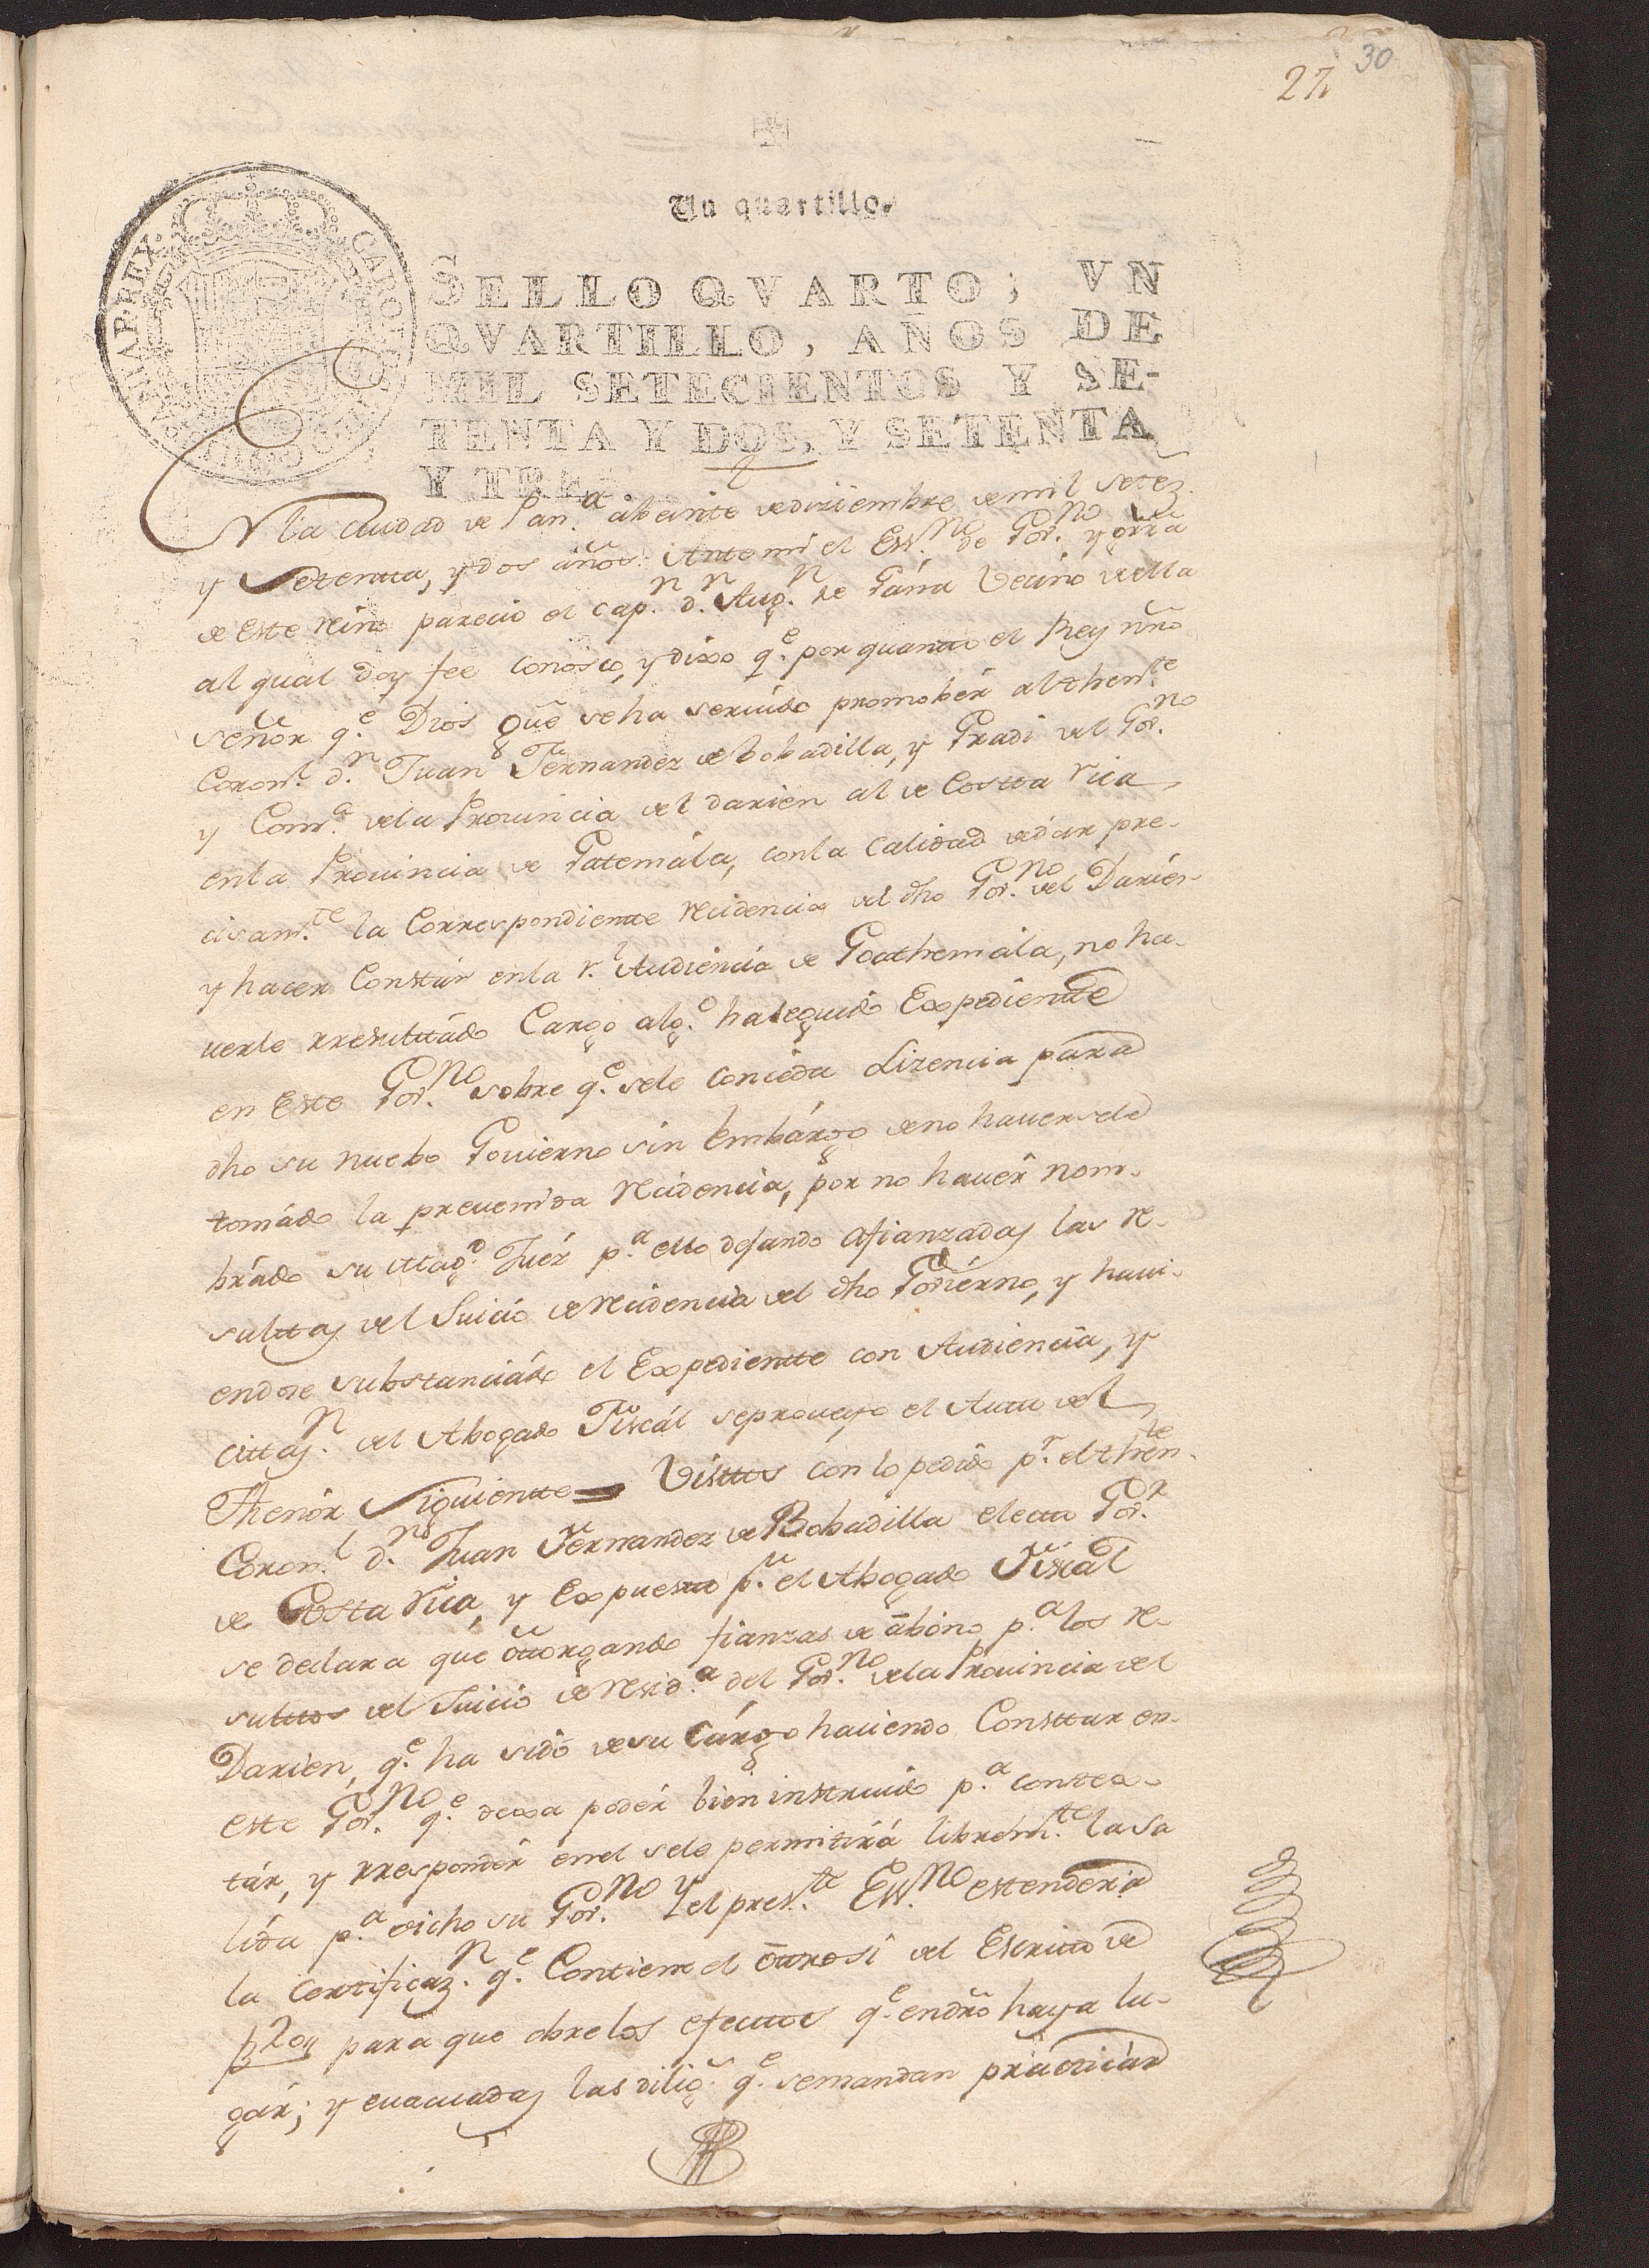 30
27
Un quartillo.
SELLO QVARTO, VN
QVARTILLO, AÑOS DE
MIL SETECIENTOS Y SE-
TENTA Y DOS, Y SETENTA
Y TRES
CAROLUS HISPANIAR REX
En la Ciudad de Pan.a abeinte dediziembre demil setez.
y Setentta, y dos años: Ante mi el Ess.no de Gov.no y grra
de este Reino parecio el cap.n d.n Aug.n de Párra Vecino della
al qual doy fee conosco, y dixo q.e por quantto el Rey nrõ
señor q.e Dios gue seha seruido promobér al thente
Coron.l d.n Juan Fernandez de Bobadilla, y Gradi del Gov.no
y Com.a dela Prouincia del darien al de Costta rica
enla Prouincia de Gatemála, conla Calidad dedár pre-
cisam.te la Correspondientte recidencia del dho Gov.no del Darién
y hacer Constár enla r.l Audiencia de Goathemála, no ha-
uerle rresulttádo Cargo alg.o haseguido Expedientte
en Este Gov.no sobre q.e sele concéda Lizencia para
dho su nuebo Gouierno sin embárgo deno hauersele
tomádo la preuenida recidencia, por no hauér nom-
brádo su Mag.d Juéz p.a ello dejando afianzadas las re-
sulttas del Juicio de recidencia del dho Goviérno, y haui-
endose substanciádo el Expedientte con Audiencia, y
cittaz.n del Abogado Fiscál seproueyo el Autto del
Thenór Siguientte = Visttos con lo pedido p.r el then.te
Coron.l d.n Juan Fernandez de Bobadilla electto Gov.r
de Costa rica, y Expuestto p.r el Abogado Fiscal
se declara que ottorgando fianzas de abóno p.a los re-
sulttos del Juicio de resid.a del Gov.no dela Prouincia del
Darien, q.e ha sido desu Cárgo haciendo Consttar en
este Gov.no q.e dexa podér bien instruido p.a contes-
tár, y rrespondér enel sele permitirá librem.te lasa
lida p.a dicho su Gov.no y el pres.te Ess.no estenderá
la Certificaz.n q.e Contiene el ottrosi del Escritto de
para que obrelos efecttos q.e endrõ haya lu-
gár; y euacuadas las dilig.s q.e semandan practticár